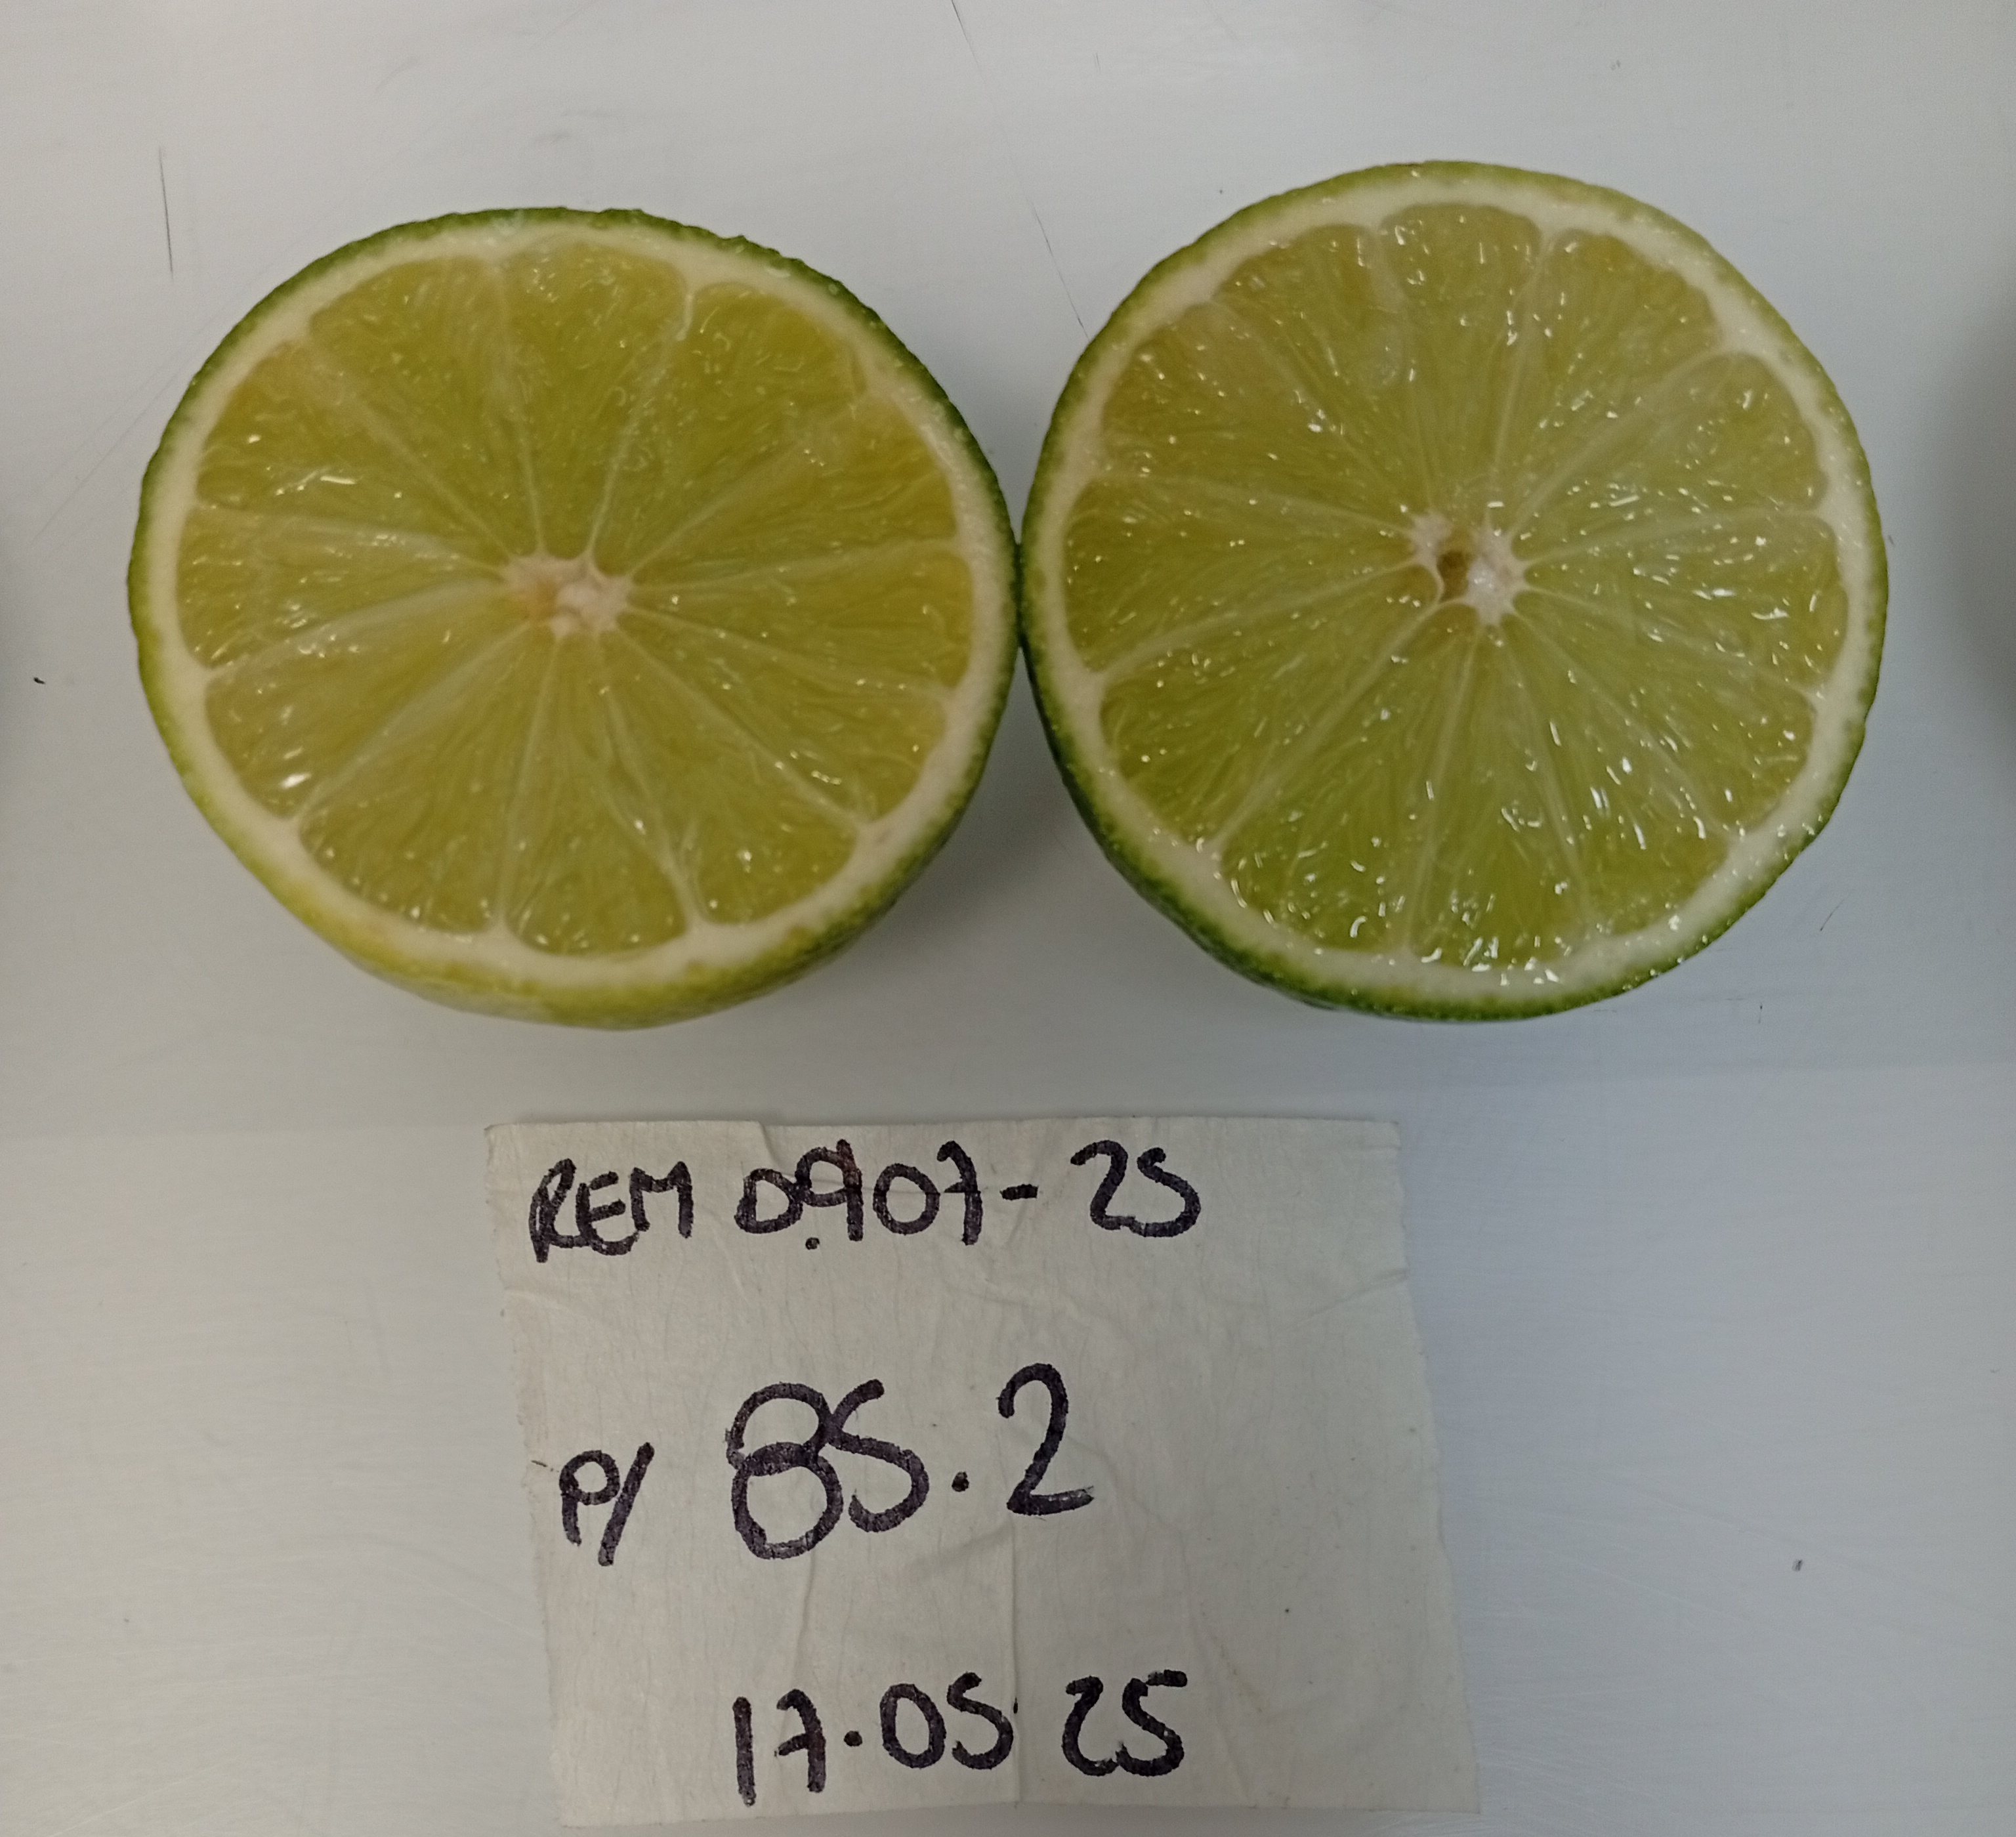 REM 0.907-25
P/ 85.2
17.05.25